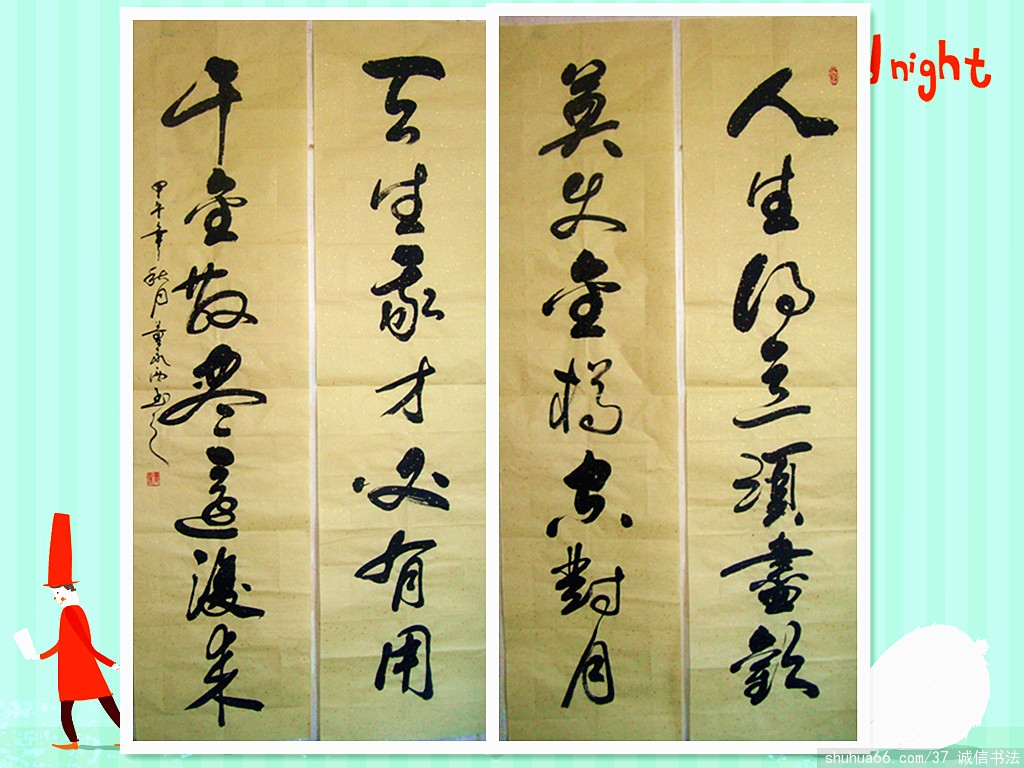 人生得意須盡歡
莫使金樽空對月
天生我才必有用
千金散盡還復来
甲午年秋月
night
shuhua66.com/37 诚信书法